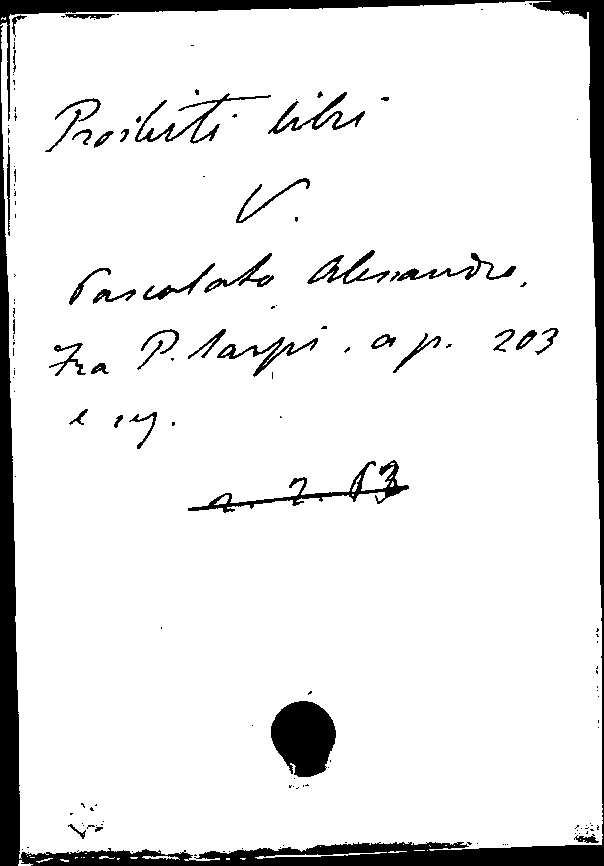 Proibiti libri
V.
Pascolato Alessandro,
Fra P. Sarpi. a p. 203
e seg.